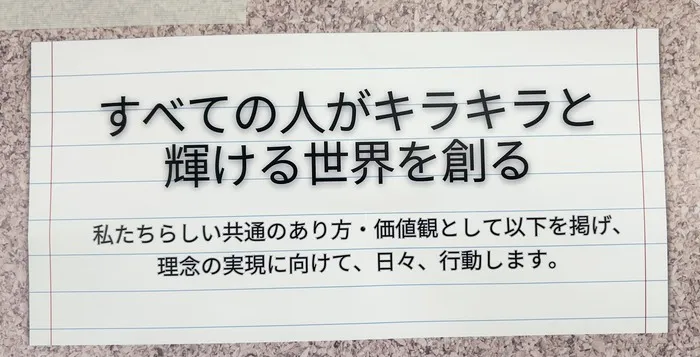 すべての人がキラキラと
輝ける世界を創る
私たちらしい共通のあり方・価値観として以下を掲げ、
理念の実現に向けて、日々、行動します。